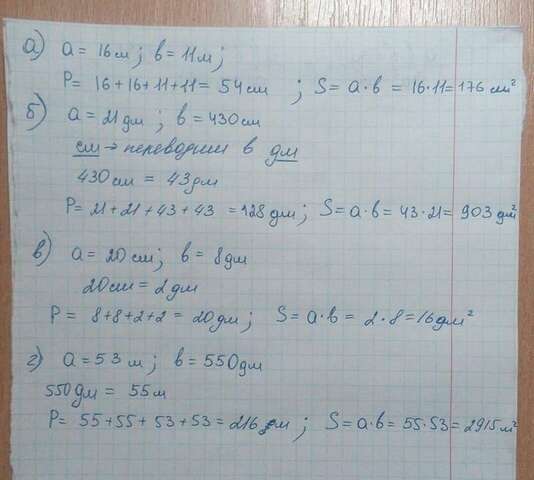 а) a = 16 см; b = 11 м;
P = 16 + 16 + 11 + 11 = 54 см ; S = a·b = 16·11 = 176 см²
б) a = 21 дм ; b = 430 см
см → переводим в дм
430 см = 43 дм
P = 21 + 21 + 43 + 43 = 128 дм; S = a·b = 43·21 = 903 дм²
в) a = 20 см; b = 8 дм
20 см = 2 дм
P = 8 + 8 + 2 + 2 = 20 дм; S = a·b = 2·8 = 16 дм²
г) a = 53 м; b = 550 дм
550 дм = 55 м
P = 55 + 55 + 53 + 53 = 216 м ; S = a·b = 55·53 = 2915 м²